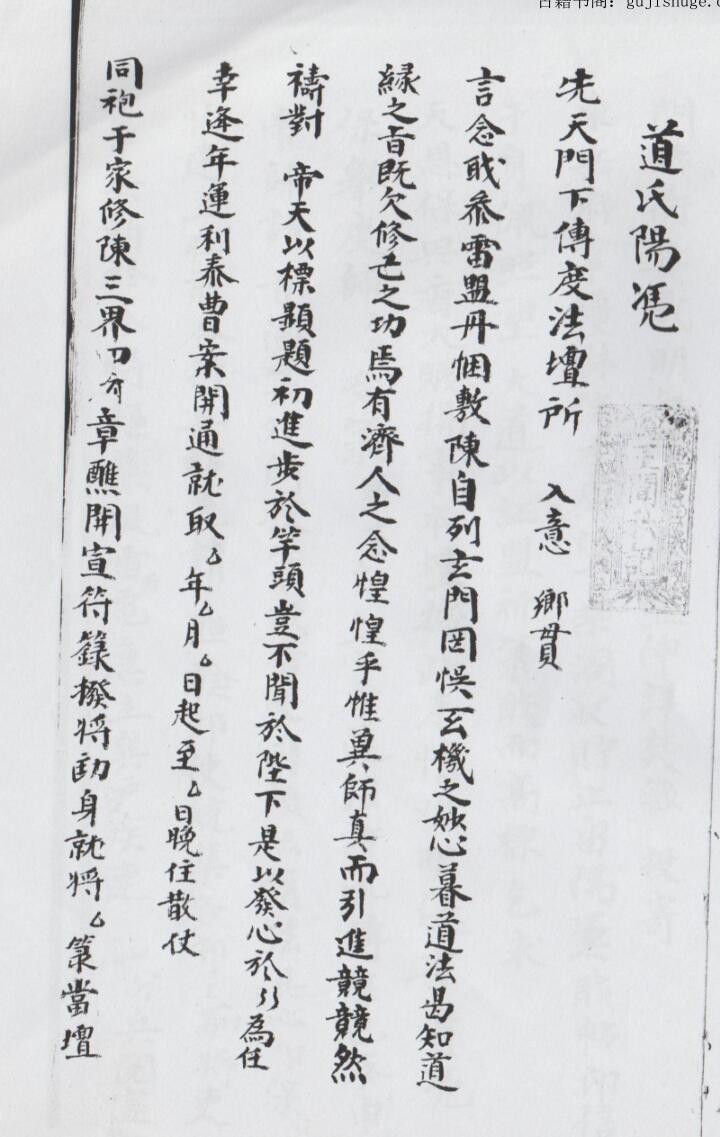 古籍书阁：gujishuge.c
道氏陽凴
先天門下傳度法壇所　入意　鄉貫
言念戝叅雷盟丹悃敷陳自列玄門罔悞玄機之妙心暮道法曷知道
緣之旨既欠修己之功焉有濟人之念惶惶乎惟兾師真而引進兢兢然
禱對　帝天以標顯題初進步於竿頭豈不聞於陛下是以發心於　為住
幸逢年運利泰曹案開通就取厶年厶月厶日起至厶日晚住散仗
同袍于家修陳三界　章醮開宣符籙撥將　身就將厶籙當壇